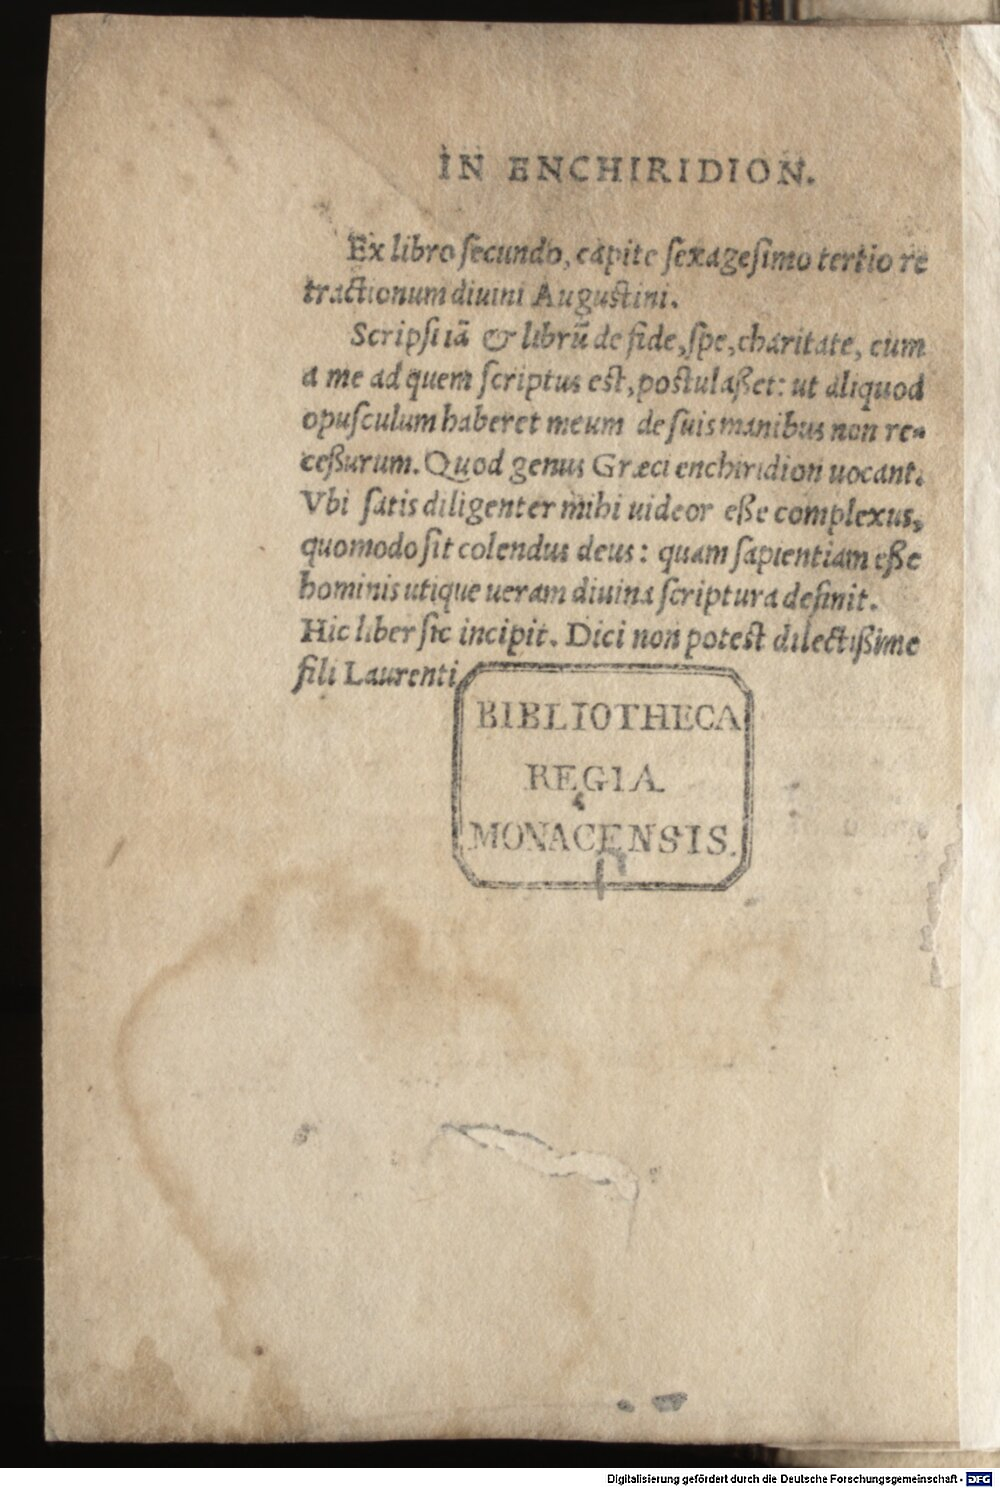 IN ENCHIRIDION.
Ex libro ſecundo, capite ſexageſimo tertio re
tractionum diuini Auguſtini.
Scripſi iã & librũ de fide, ſpe, charitate, cum
a me ad quem ſcriptus eſt, poſtulaßet: ut aliquod
opuſculum haberet meum de ſuis manibus non re-
ceßurum. Quod genus Græci enchiridion uocant.
Vbi ſatis diligenter mihi uideor eße complexus,
quomodo ſit colendus deus: quam ſapientiam eße
hominis utique ueram diuina ſcriptura definit.
Hic liber ſic incipit. Dici non poteſt dilectißime
fili Laurenti
BIBLIOTHECA
REGIA
MONACENSIS.
Digitalisierung gefördert durch die Deutsche Forschungsgemeinschaft - DFG